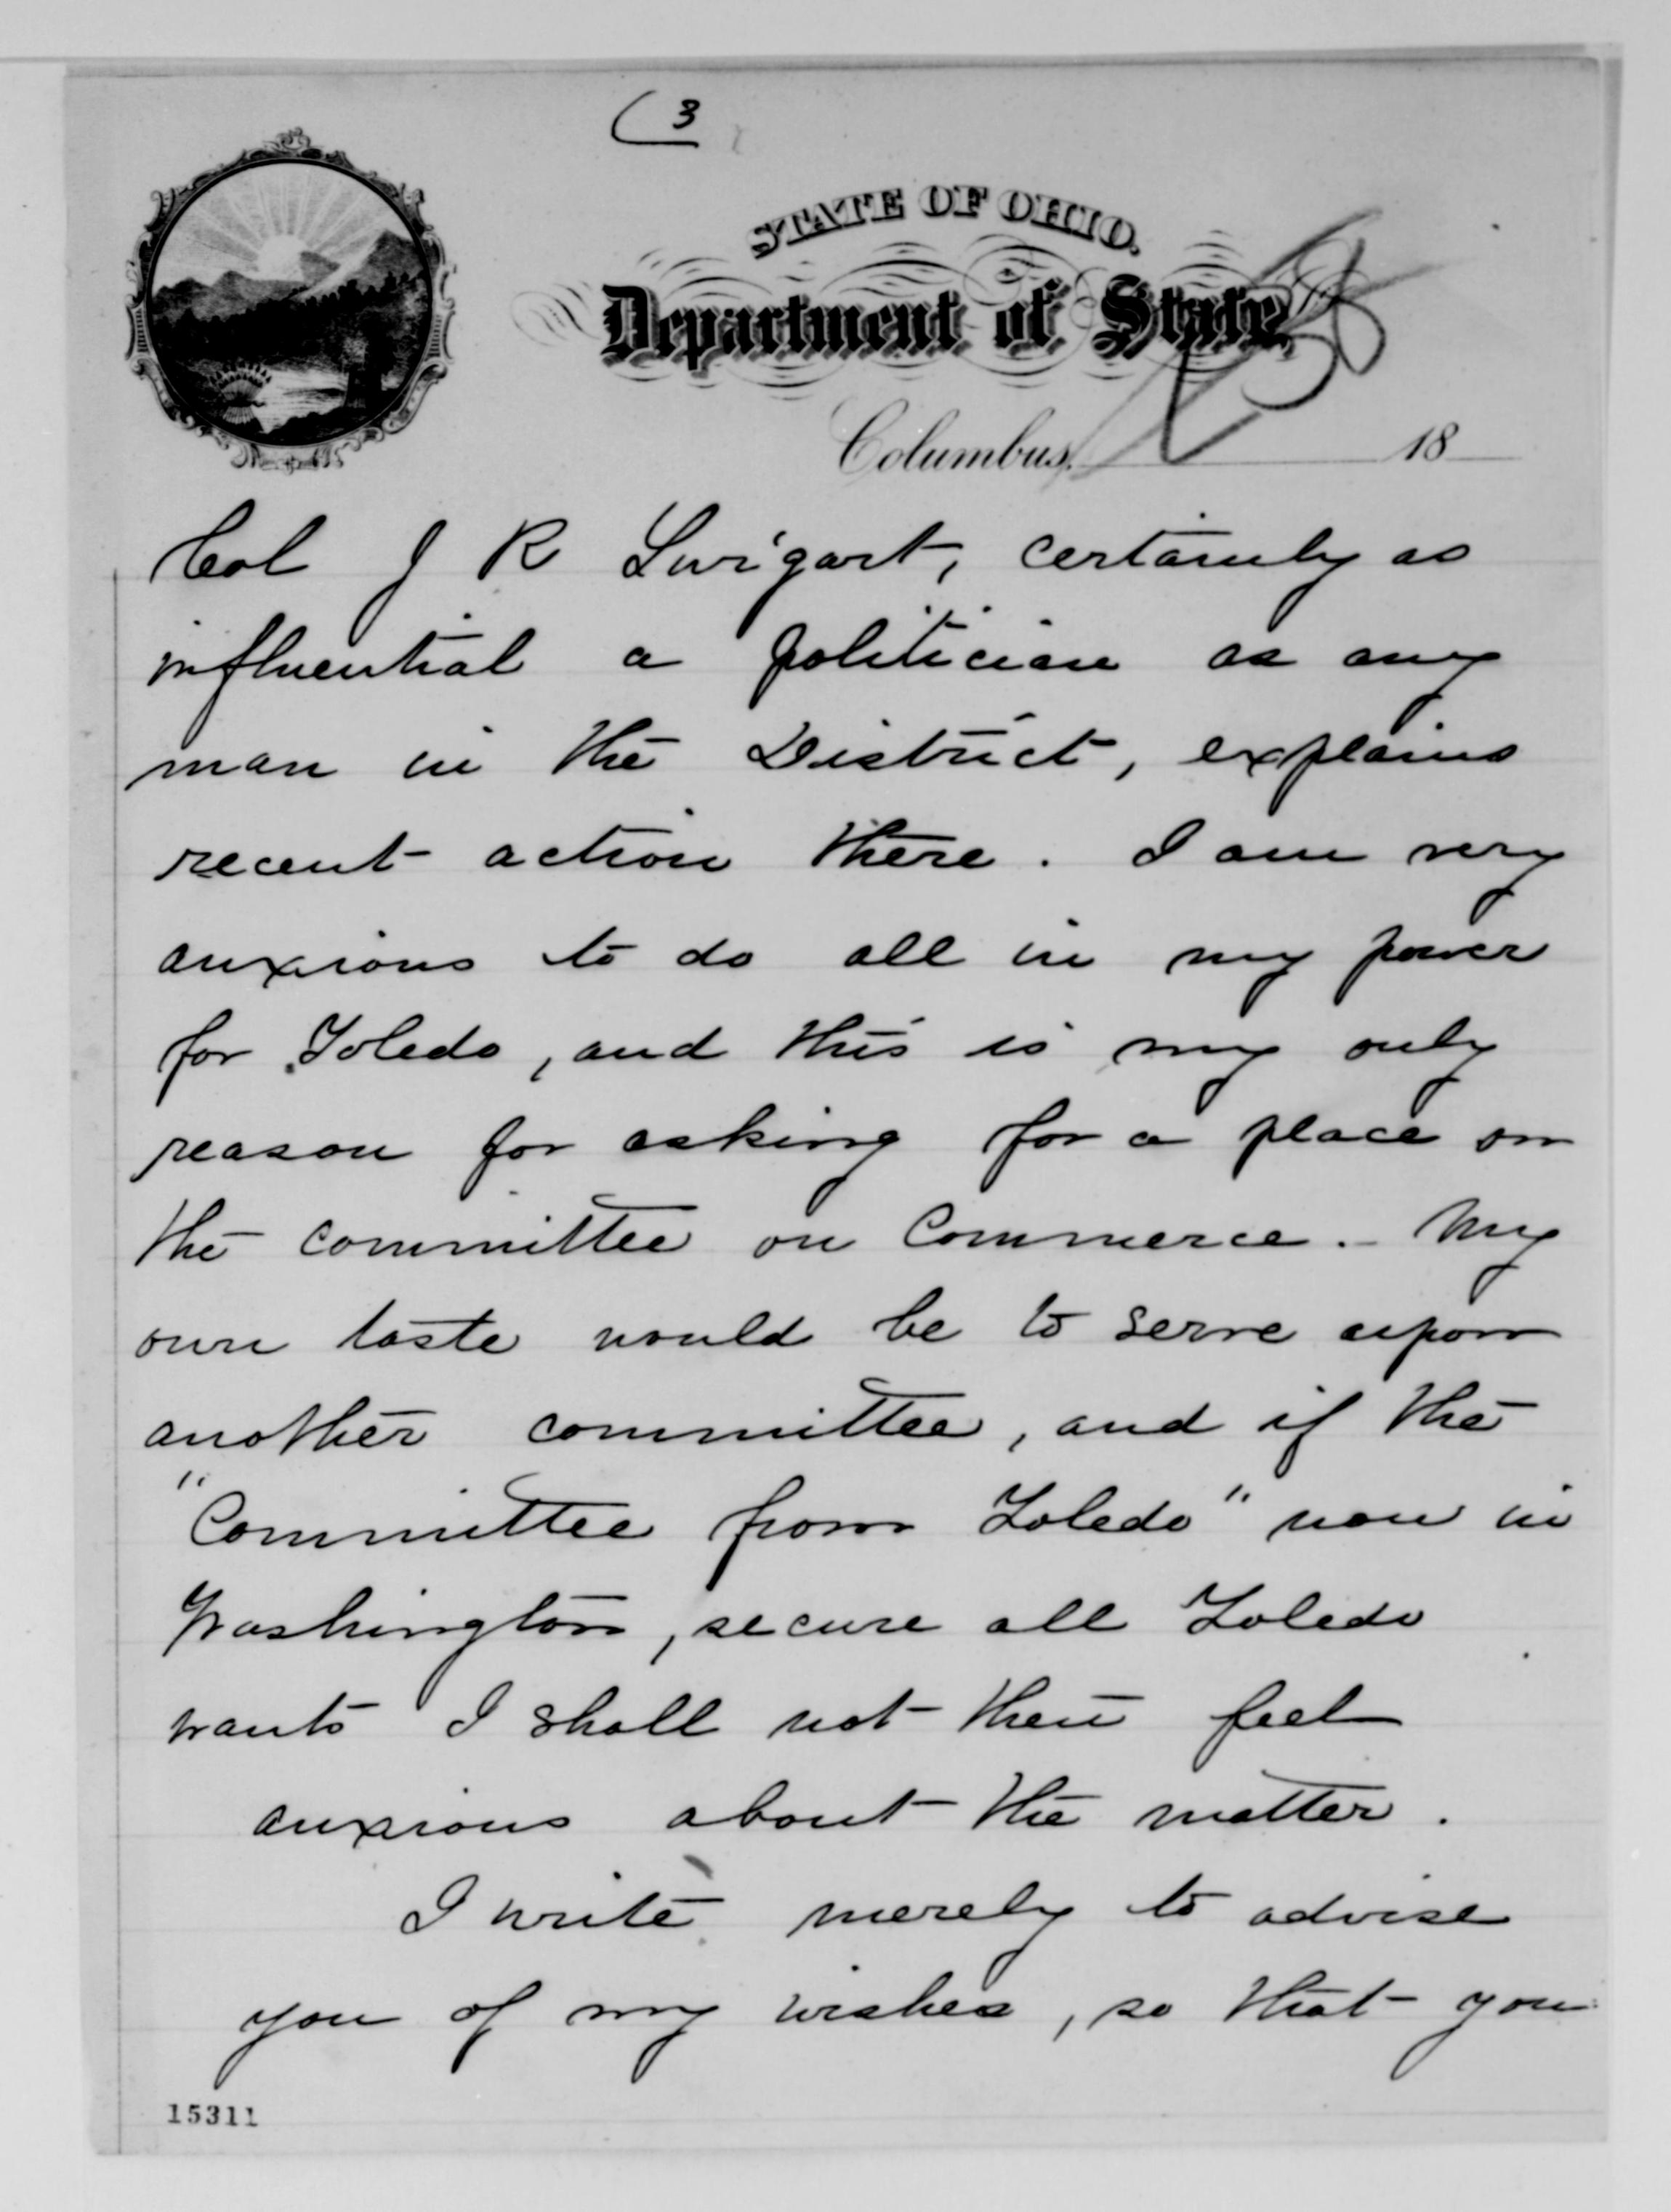 (3
STATE OF OHIO.
Department of State,
Columbus, 18
Col J R Swigart, certainly as
influential a politician as any
man in the District, explains
recent action there. I am very
anxious to do all in my power
for Toledo, and this is my only
reason for asking for a place on
the committee on Commerce. - My
own taste would be to serve upon
another committee, and if the
"Committee from Toledo" now in
Washington, secure all Toledo
wants I shall not then feel
anxious about the matter.
I write merely to advise
you of my wishes, so that you
15311